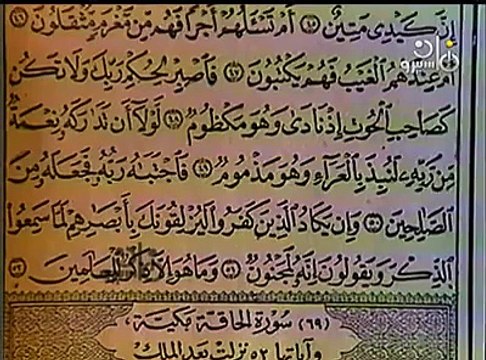 إِنَّ كَيْدِى مَتِينٌ ۝ أَمْ تَسْـَٔلُهُمْ أَجْرًا فَهُم مِّن مَّغْرَمٍ مُّثْقَلُونَ
أَمْ عِندَهُمُ الْغَيْبُ فَهُمْ يَكْتُبُونَ ۝ فَاصْبِرْ لِحُكْمِ رَبِّكَ وَلَا تَكُن
كَصَاحِبِ الْحُوتِ إِذْ نَادَى وَهُوَ مَكْظُومٌ ۝ لَوْلَا أَن تَدَارَكَهُ نِعْمَةٌ
مِّن رَّبِّهِ لَنُبِذَ بِالْعَرَاءِ وَهُوَ مَذْمُومٌ ۝ فَاجْتَبَاهُ رَبُّهُ فَجَعَلَهُ مِنَ
الصَّالِحِينَ ۝ وَإِن يَكَادُ الَّذِينَ كَفَرُوا لَيُزْلِقُونَكَ بِأَبْصَارِهِمْ لَمَّا سَمِعُوا
الذِّكْرَ وَيَقُولُونَ إِنَّهُ لَمَجْنُونٌ ۝ وَمَا هُوَ إِلَّا ذِكْرٌ لِّلْعَالَمِينَ ۝
(٦٩) سُورَةُ الْحَاقَّةِ مَكِّيَّة
وآياتها ٥٢ نزلت بعد الملك